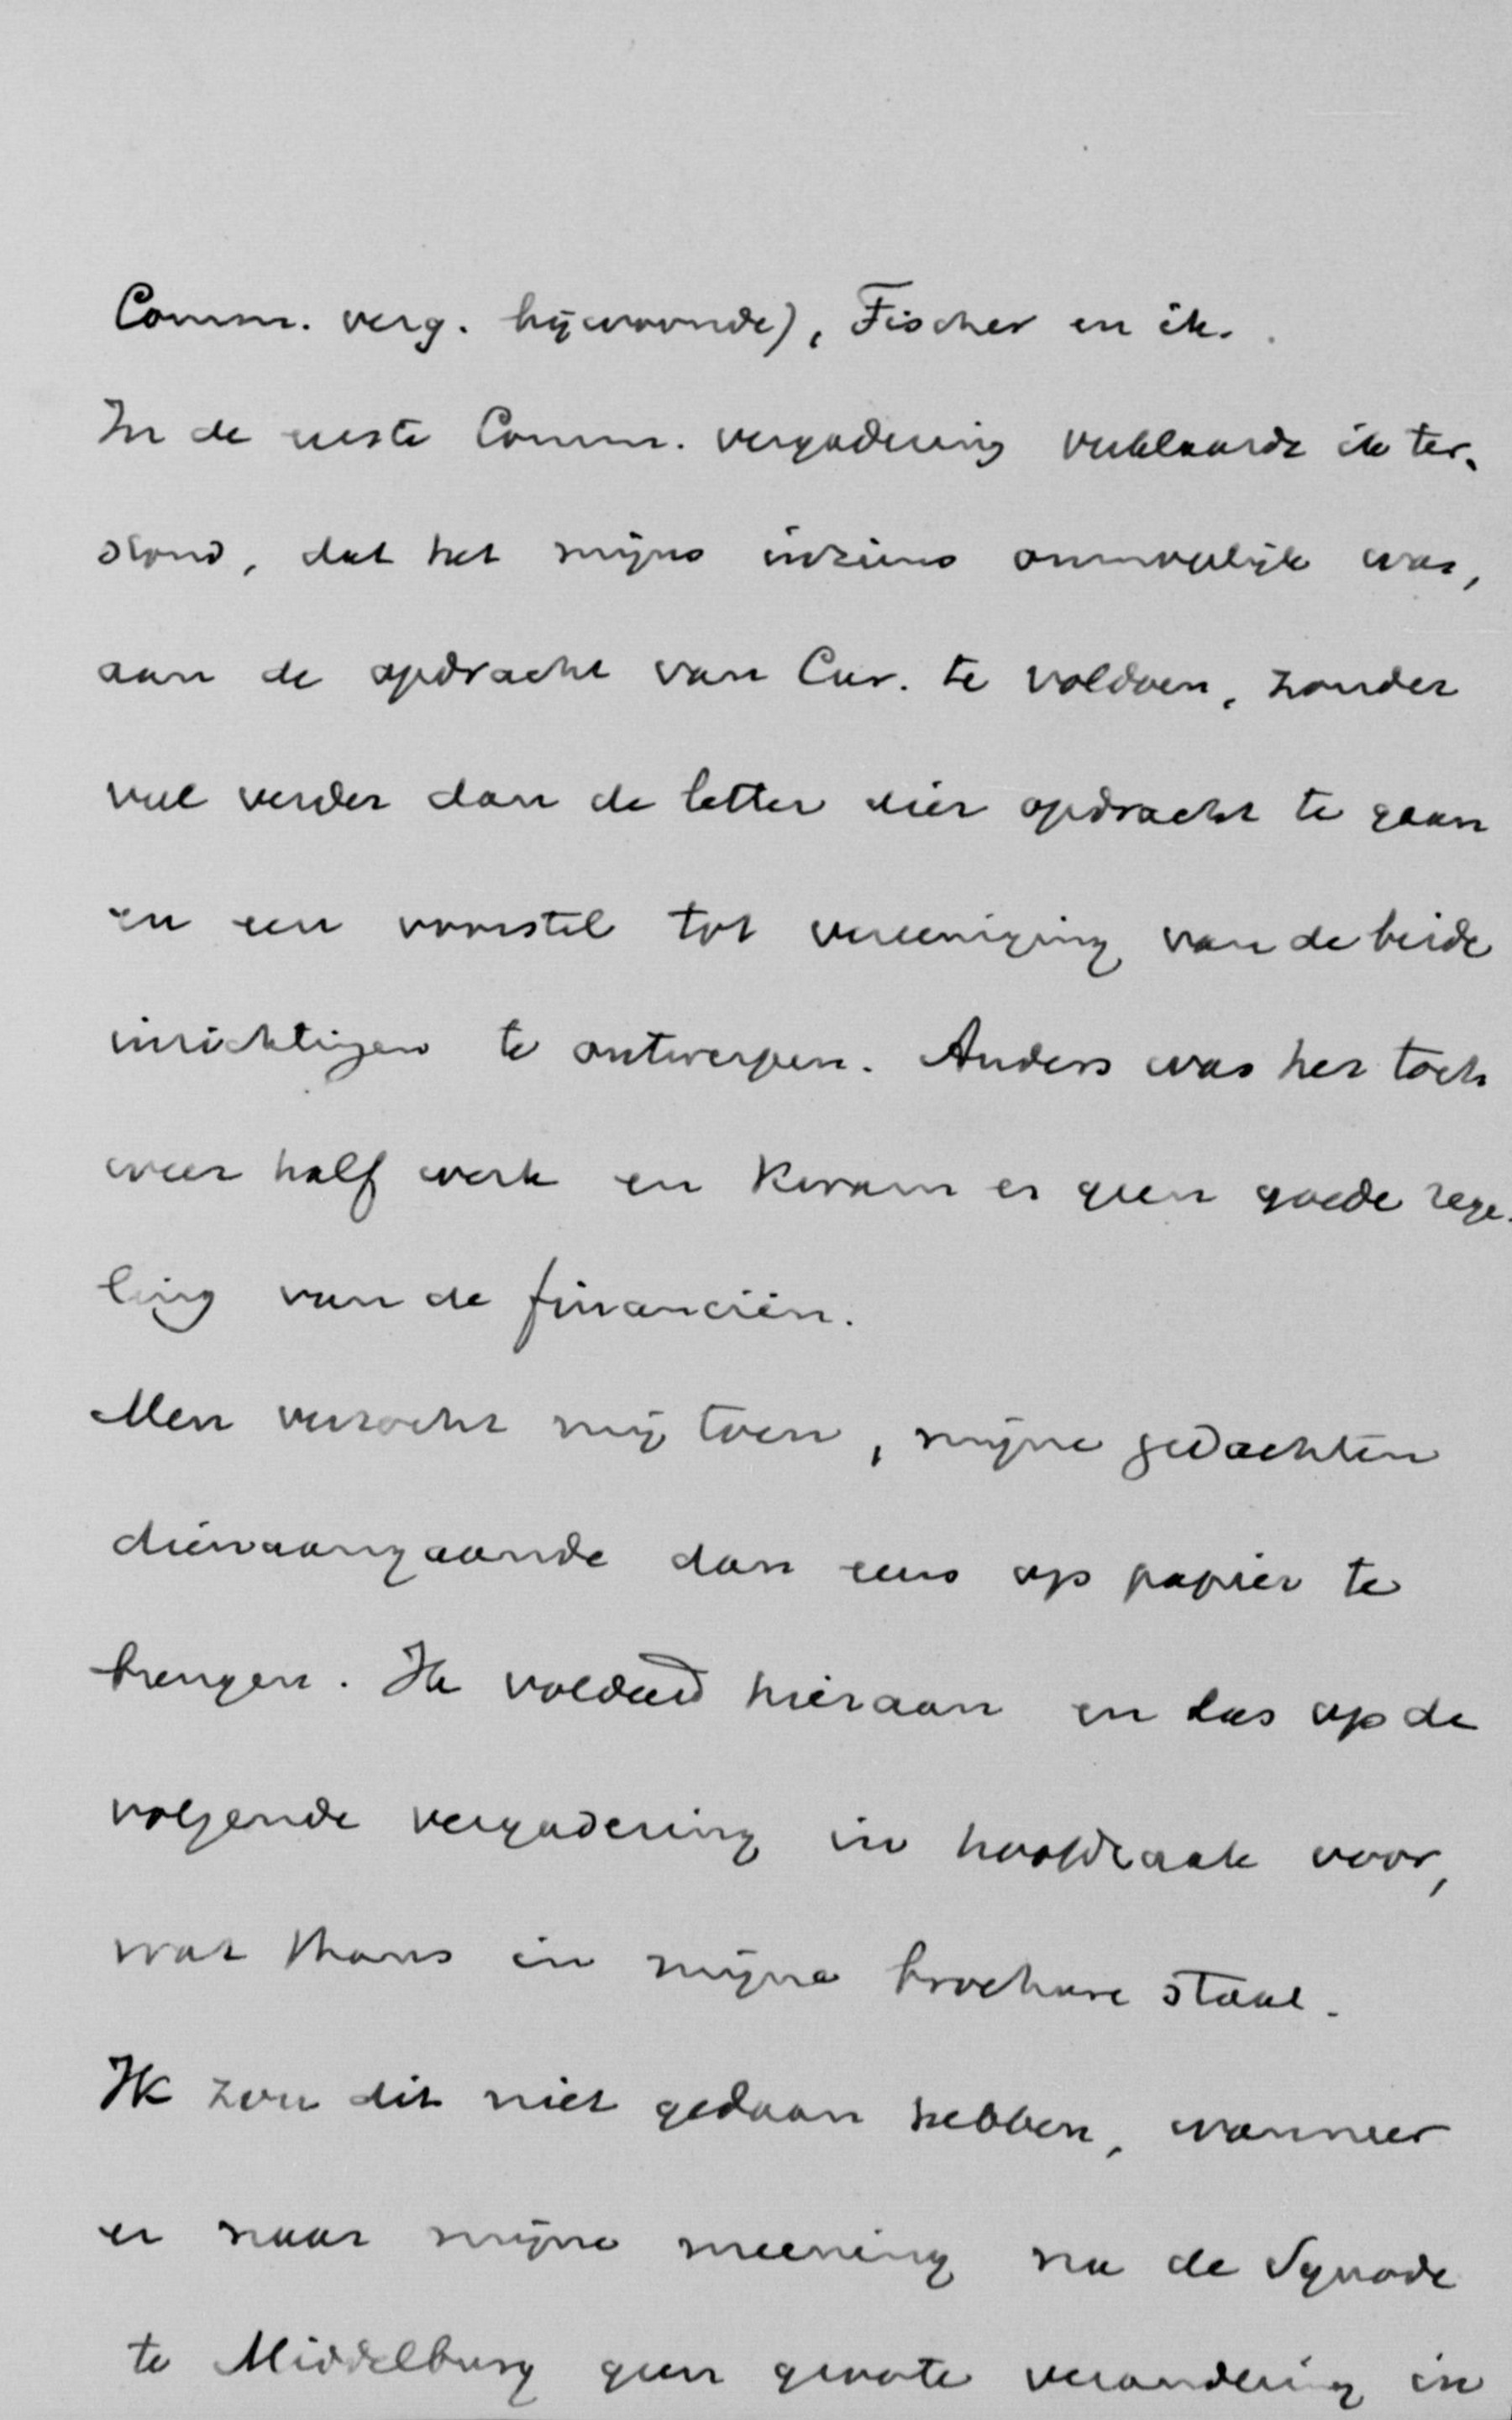 Comm. verg. bijwoonde), Fischer en ik.
In de eerste Comm. vergadering verklaarde ik ter-
stond, dat het mijns inziens onmogelijk was,
aan de opdracht van Cur. te voldoen, zonder
veel verder dan de letter dier opdracht te gaan
en een voorstel tot vereeniging van de beide
inrichtingen te ontwerpen. Anders was het toch
weer half werk en kwam er geen goede rege-
ling van de financiën.
Men verzocht mij toen, mijne gedachten
dienaangaande dan eens op papier te
brengen. Ik voldeed hieraan en las op de
volgende vergadering in hoofdzaak voor,
wat thans in mijne brochure staat.
Ik zou dit niet gedaan hebben, wanneer
er naar mijne meening na de Synode
te Middelburg geen groote verandering in